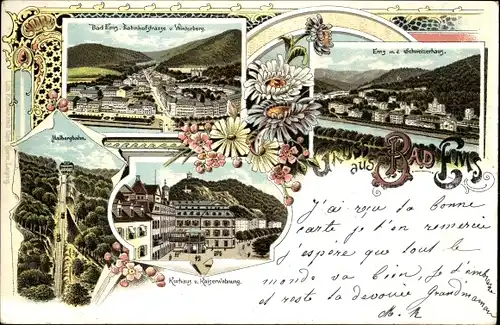 Bad Ems. Bahnhofstrasse u. Winterberg.
Ems m. d. Schweizerhaus.
Malbergbahn.
GRUSS aus BAD EMS
Kurhaus u. Kaiserwohnung.
J'ai reçu ta bonne
carte je t'en remercie
j'espère que tout le
monde va bien, je t'embrasse
et reste ta dévouée Grandmaman
M. R